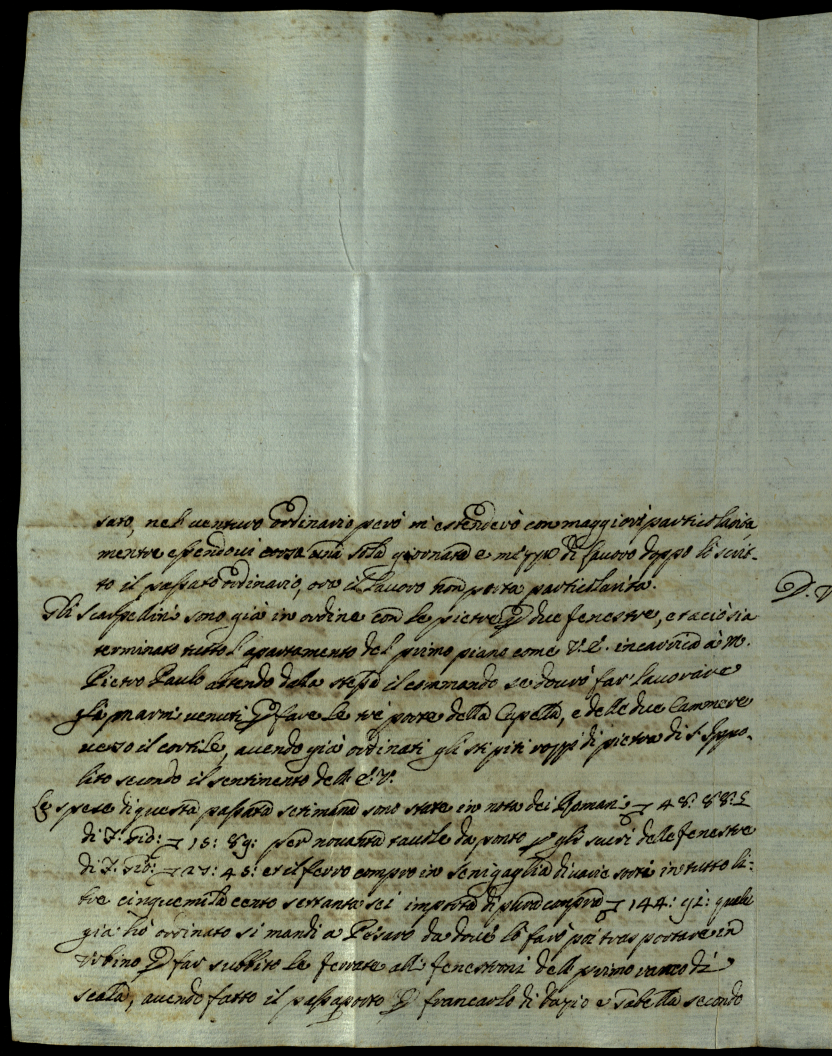 sato, nel venturo ordinario però m'estenderò con maggiori particolarità
mentre essendovi corsa una sola giornata e mezzo di lavoro doppo lo scrit-
to il passato ordinario, ove il lavoro non porta particolarità.
Gli scarpellini sono già in ordine con le pietre p due fenestre, et acciò sia
terminato tutto l'apartamento del primo piano come V.E. incaricò à M.
Pietro Paulo attendo dalla stessa il commando se dovrò far lavorare
gli marmi venuti p fare le trè porte della Capella, e delle due Cammere
verso il cortile, avendo già ordinati gli stipiti rozzi di pietra di S. Ippo-
lito secondo il sentimento dell' E.V.
Le spese di questa passata settimana sono state in nota dei Romani 48: 88:
di F. Gio: 15: 89: per novanta tavole da ponto p gli scuri delle fenestre
di F. Gio: 27: 45: et il ferro compro in Senigaglia di varie sorti in tutto li-
bre cinquemila cento settanta sei importa di pura compra 144: 91: quale
già hò ordinato si mandi a Pesaro da dove lo farò poi trasportare in
Urbino p far subbito le ferrate alli fenestroni dell primo ramo di
scala, avendo fatto il passaporto p francarlo di dazio e gabella secondo
D. V